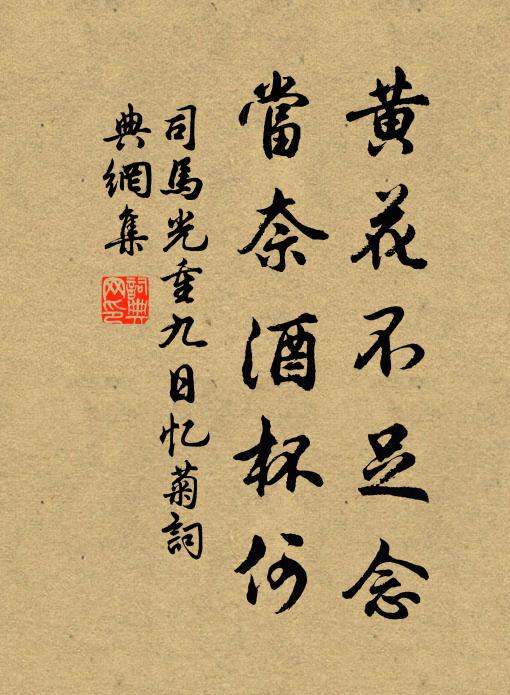 黄花不足念
當奈酒杯何
司馬光重九日忆菊詞
典網集
詞典
网印